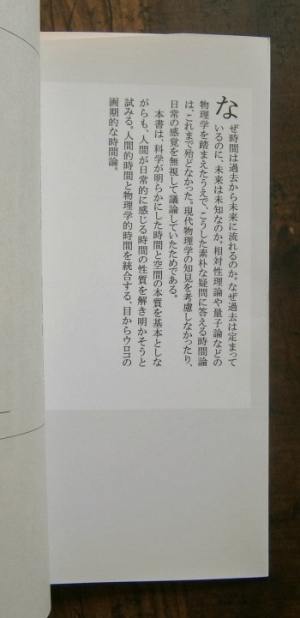 なぜ時間は過去から未来に流れるのか。なぜ過去は定まって
いるのに、未来は未知なのか。相対性理論や量子論などの
物理学を踏まえたうえで、こうした素朴な疑問に答える時間論
は、これまで殆どなかった。現代物理学の知見を考慮しなかったり、
日常の感覚を無視して議論していたためである。
本書は、科学が明らかにした時間と空間の本質を基本としな
がらも、人間が日常的に感じる時間の性質を解き明かそうと
試みる。人間的時間と物理学的時間を統合する、目からウロコの
画期的な時間論。